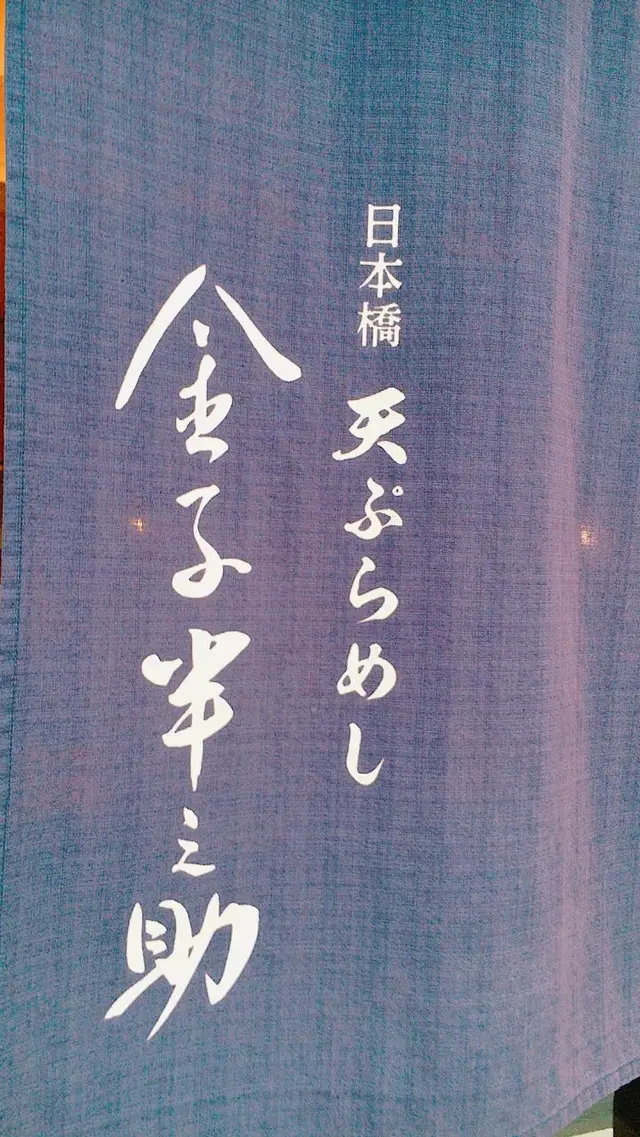 日本橋 天ぷらめし
金子半之助